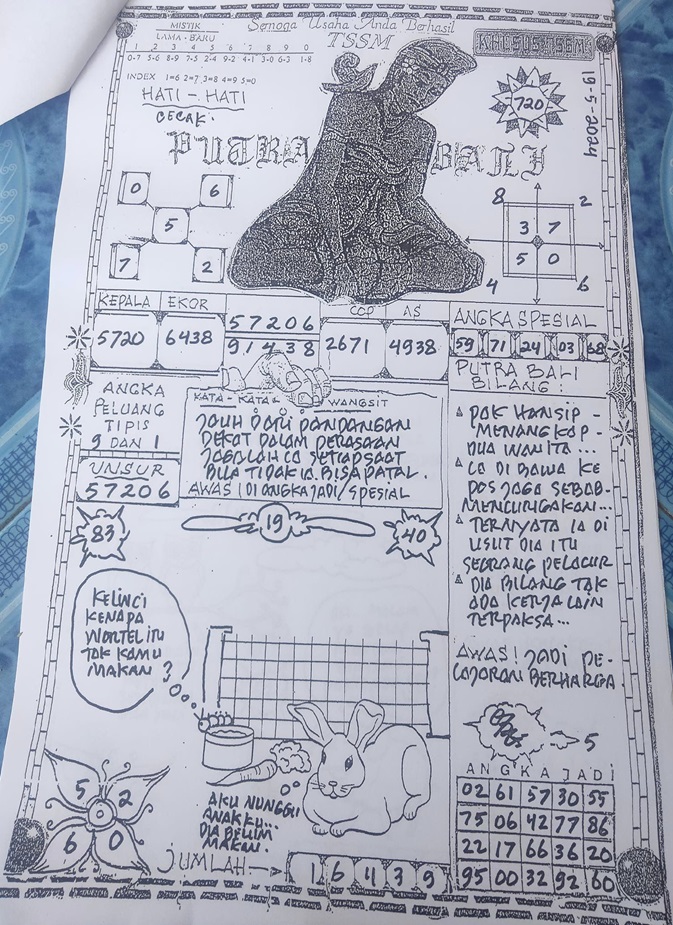 Semoga Usaha Anda Berhasil
MISTIK
LAMA - BARU
1 2 3 4 5 6 7 8 9 0
0-7 5-6 8-9 7-5 2-4 9-2 4-1 3-0 6-3 1-8
INDEX 1=6 2=7 3=8 4=9 5=0
TSSM
KHUSUS TSSM
HATI - HATI
CECAK.
720
19-5-2024
PUTRA BALI
0 6
5
7 2
8 2
3 7
5 0
4 6
KEPALA EKOR
5720 6438
57206
91438
COP AS
2671 4938
ANGKA SPESIAL
59 71 24 03 68
ANGKA
PELUANG
TIPIS
9 DAN 1
UNSUR
57206
KATA - KATA WANGSIT
JAUH DARI PANDANGAN
DEKAT DALAM PERASAAN
JAGALAH IA SETIAP SAAT
BILA TIDAK IA BISA PATAL.
AWAS! DI ANGKA JADI/SPESIAL
PUTRA BALI
BILANG:
PAK HANSIP -
MENANGKAP -
DUA WANITA ...
IA DI BAWA KE
POS JAGA SEBAB -
MENCURIGAKAN...
TERNYATA IA DI
USUT DIA ITU
SEORANG PELACUR
DIA BILANG TAK
ADA KERJA LAIN
TERPAKSA...
AWAS! JADI PE-
LAJARAN BERHARGA.
83
19
40
KELINCI
KENAPA
WORTEL ITU
TAK KAMU
MAKAN ?
AKU NUNGGU
ANAKKU...
DIA BELUM
MAKAN.
5 2
6 0
5
JUMLAH
1 6 4 3 9
ANGKA JADI
02 61 57 30 55
75 06 42 77 86
22 17 66 36 20
95 00 32 92 60